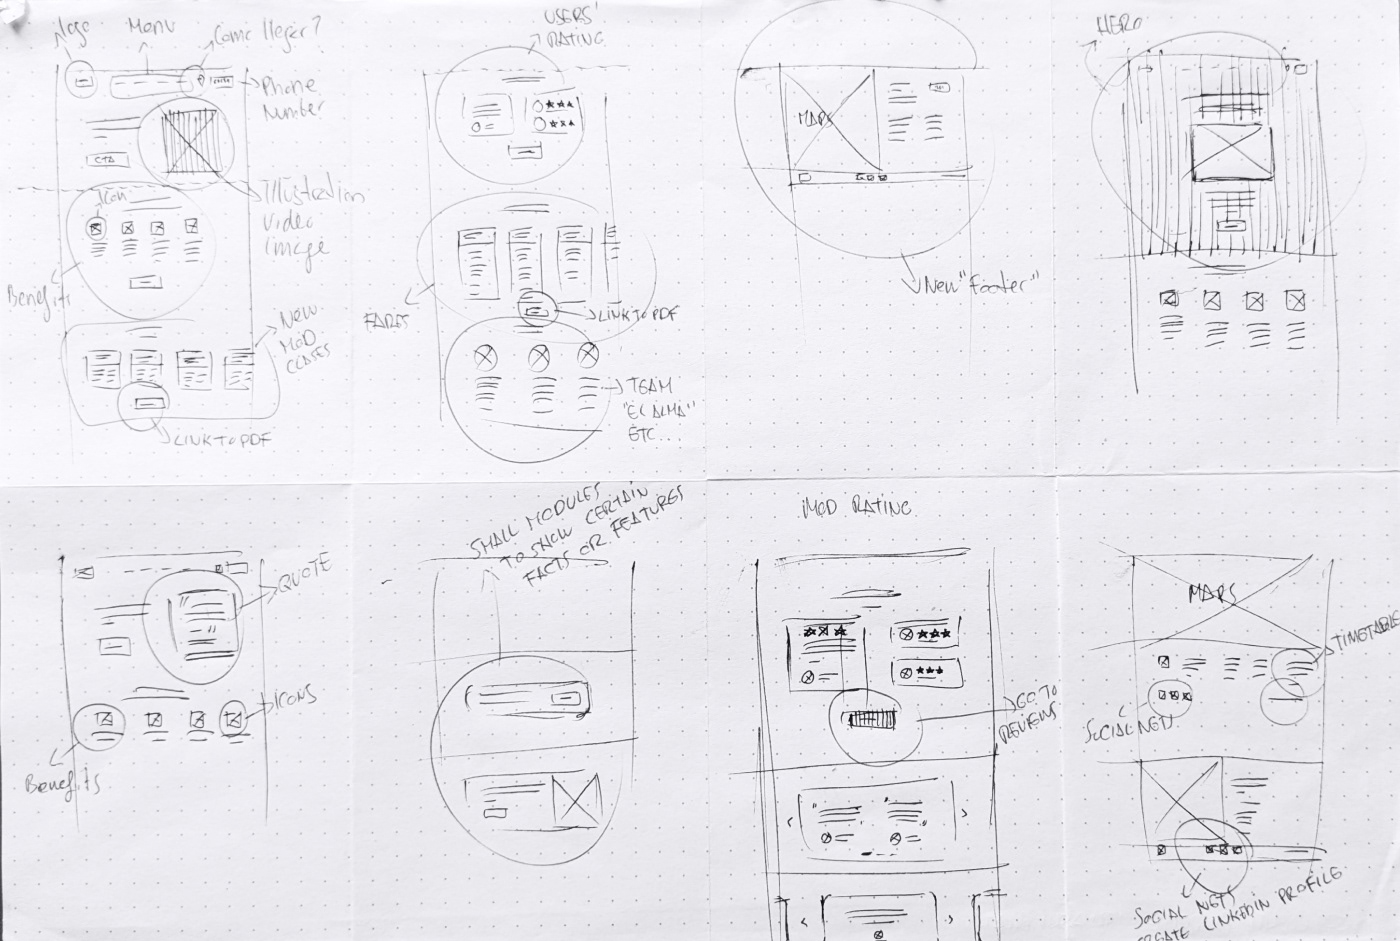 Logo
Menu
Como llegar?
Phone
Number
CTA
Illustration
Video
Image
Icon
Benefits
NEW
MOD
CLASES
LINK TO PDF
USERS'
RATING
FARES
LINK TO PDF
TEAM
"EL ALMA"
ETC...
MAPS
New "Footer"
HERO
QUOTE
ICONS
Benefits
SMALL MODULES
TO SHOW CERTAIN
FACTS OR FEATURES
MOD RATING
GO TO
REVIEWS
MAPS
TIMETABLE
SOCIAL NETS
SOCIAL NETS
CREATE LINKEDIN PROFILE